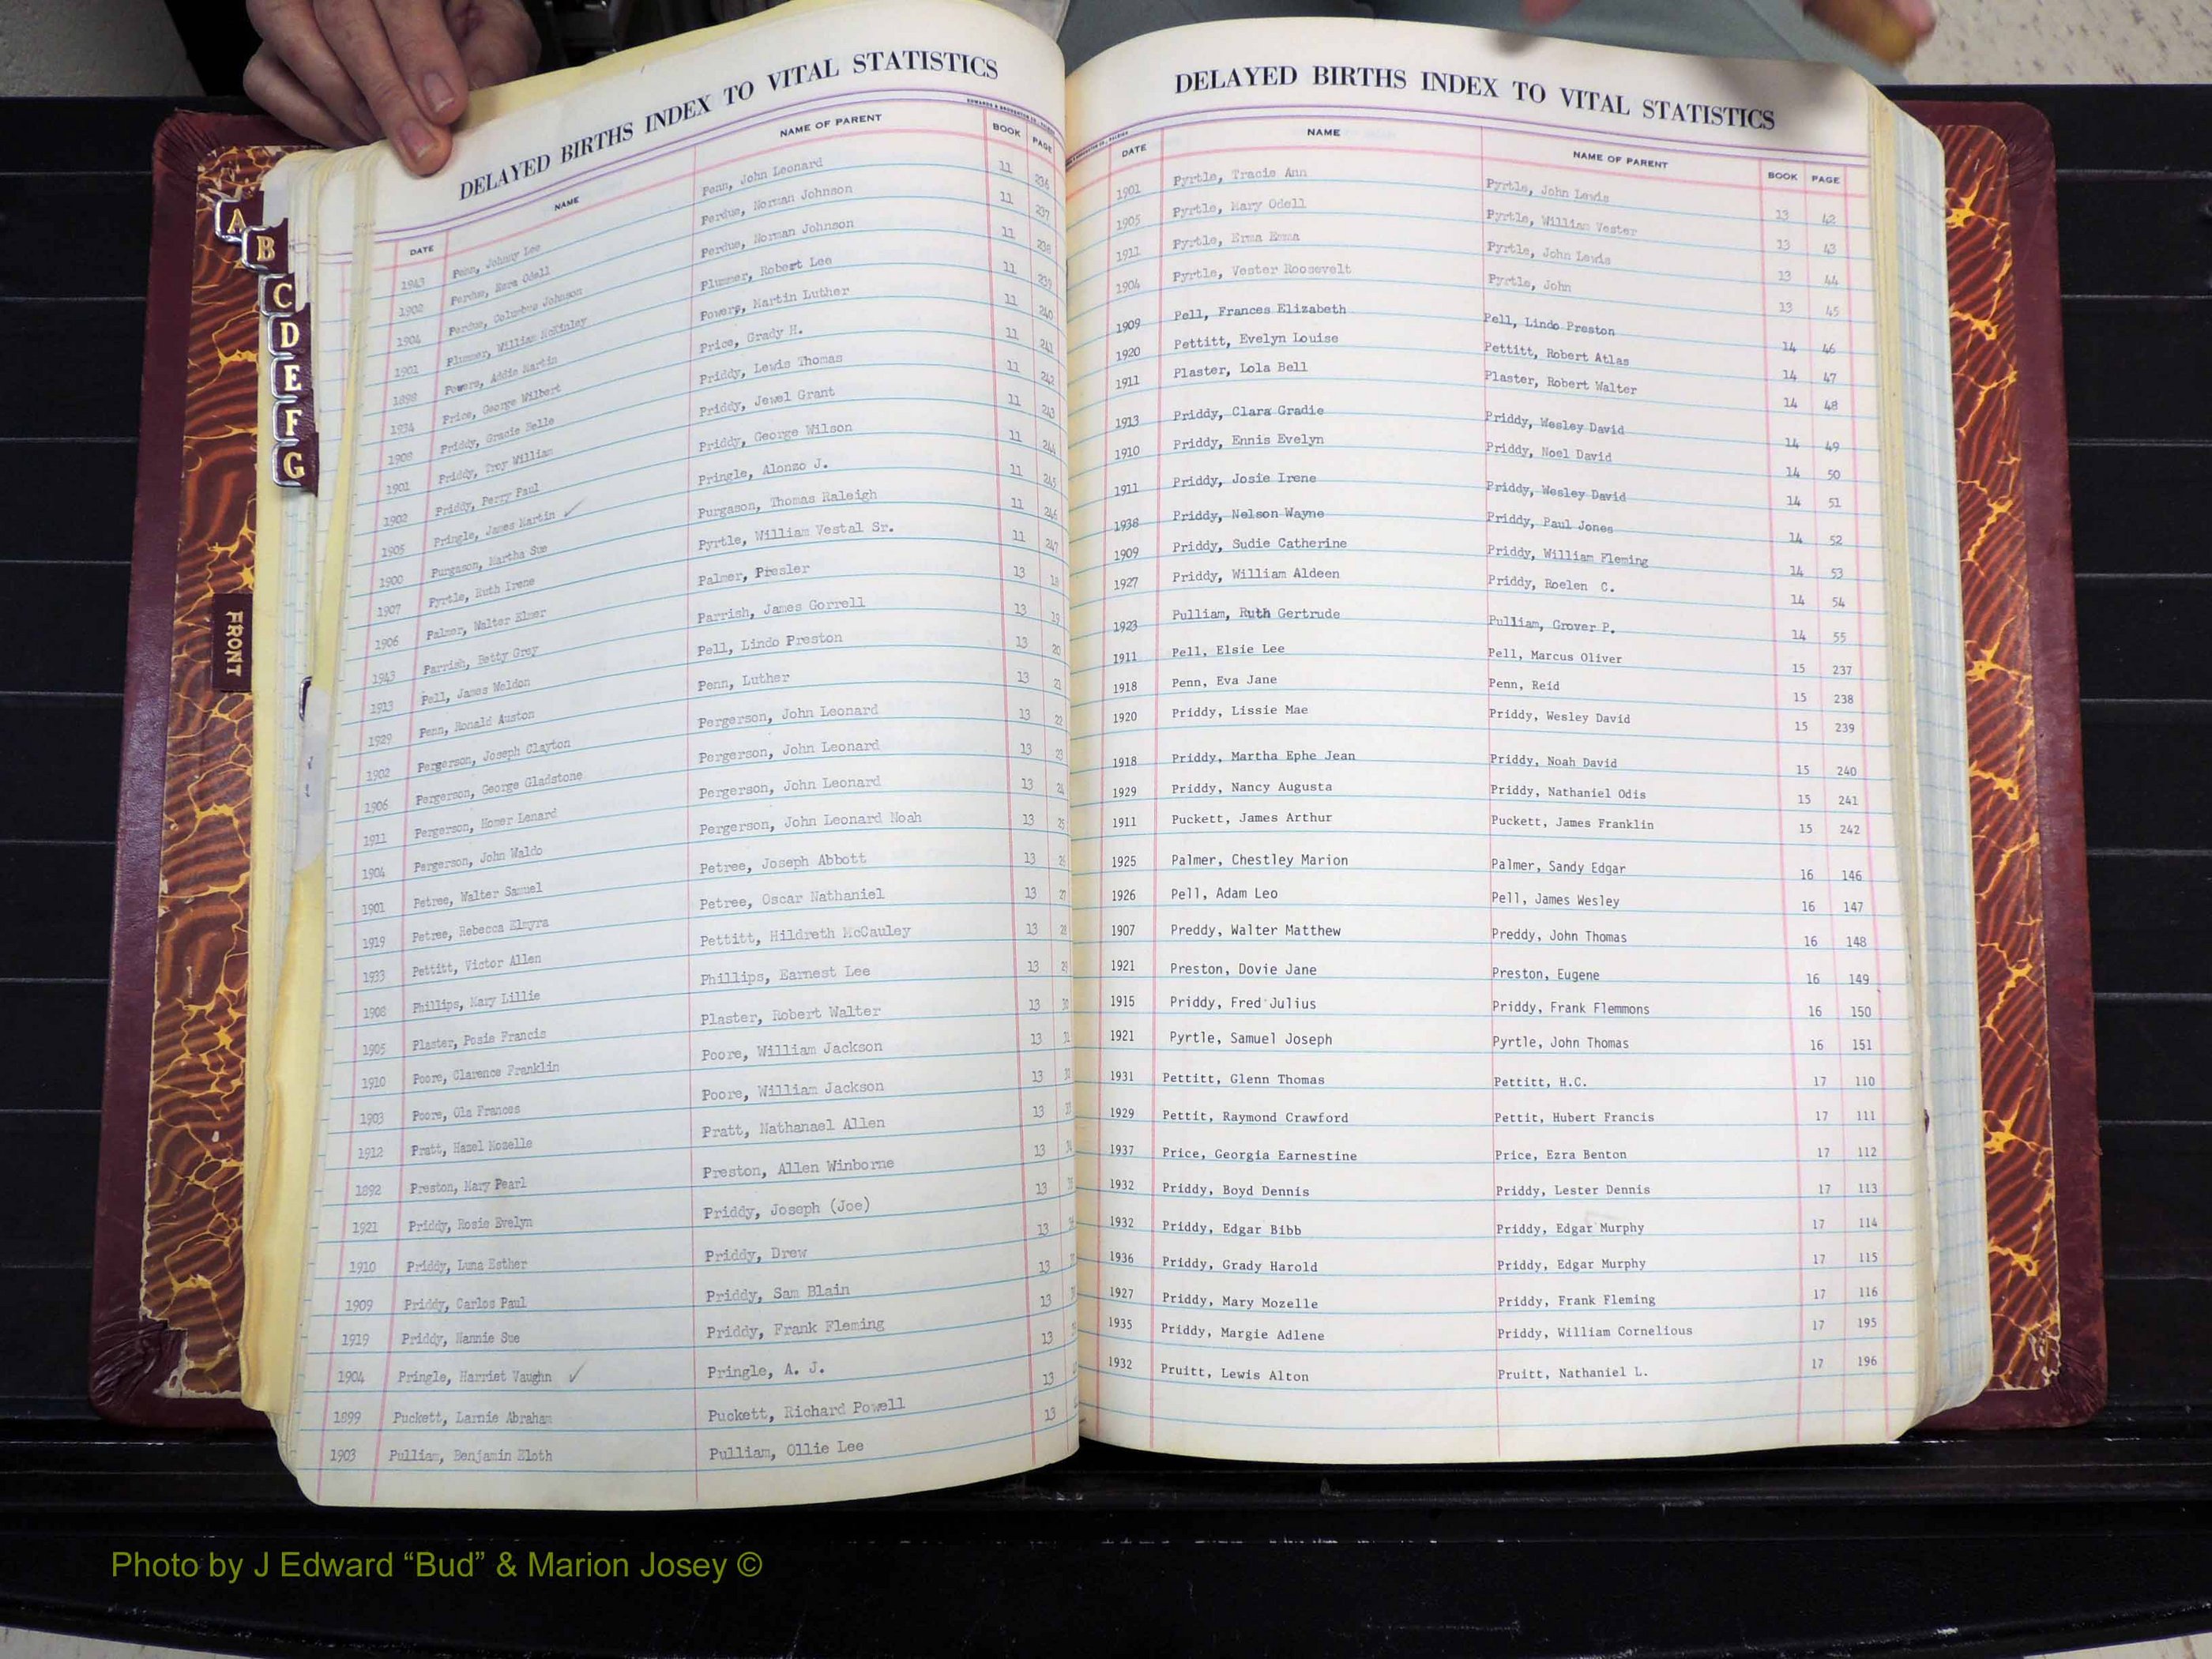 A
B
C
D
E
F
G
FRONT
DELAYED BIRTHS INDEX TO VITAL STATISTICS
DATE NAME NAME OF PARENT BOOK PAGE
1943 Penn, Johnny Lee Penn, John Leonard 11 236
1902 Perdue, Ezra Odell Perdue, Norman Johnson 11 237
1904 Perdue, Columbus Johnson Perdue, Norman Johnson 11 238
1901 Plummer, William McKinley Plummer, Robert Lee 11 239
1898 Powers, Addie Martin Powers, Martin Luther 11 240
1934 Price, George Wilbert Price, Grady H. 11 241
1908 Priddy, Gracie Belle Priddy, Lewis Thomas 11 242
1901 Priddy, Troy William Priddy, Jewel Grant 11 243
1902 Priddy, Perry Paul Priddy, George Wilson 11 244
1905 Pringle, James Martin ✓ Pringle, Alonzo J. 11 245
1900 Purgason, Martha Sue Purgason, Thomas Raleigh 11 246
1907 Pyrtle, Ruth Irene Pyrtle, William Vestal Sr. 11 247
1906 Palmer, Walter Elmer Palmer, Presler 13 18
1943 Parrish, Betty Grey Parrish, James Gorrell 13 19
1913 Pell, James Weldon Pell, Lindo Preston 13 20
1929 Penn, Ronald Auston Penn, Luther 13 21
1902 Pergerson, Joseph Clayton Pergerson, John Leonard 13 22
1906 Pergerson, George Gladstone Pergerson, John Leonard 13 23
1911 Pergerson, Homer Lenard Pergerson, John Leonard 13 24
1904 Pergerson, John Waldo Pergerson, John Leonard Noah 13 25
1901 Petree, Walter Samuel Petree, Joseph Abbott 13 26
1919 Petree, Rebecca Elmyra Petree, Oscar Nathaniel 13 27
1933 Pettitt, Victor Allen Pettitt, Hildreth McCauley 13 28
1908 Phillips, Mary Lillie Phillips, Earnest Lee 13 29
1905 Plaster, Posie Francis Plaster, Robert Walter 13
1910 Poore, Clarence Franklin Poore, William Jackson 13
1903 Poore, Ola Frances Poore, William Jackson 13
1912 Pratt, Hazel Mozelle Pratt, Nathanael Allen 13
1892 Preston, Mary Pearl Preston, Allen Winborne 13
1921 Priddy, Rosie Evelyn Priddy, Joseph (Joe) 13
1910 Priddy, Luna Esther Priddy, Drew 13
1909 Priddy, Carlos Paul Priddy, Sam Blain 13
1919 Priddy, Nannie Sue Priddy, Frank Fleming 13
1904 Pringle, Harriet Vaughn ✓ Pringle, A. J. 13
1899 Puckett, Larnie Abraham Puckett, Richard Powell 13
1903 Pulliam, Benjamin Eloth Pulliam, Ollie Lee 13
DELAYED BIRTHS INDEX TO VITAL STATISTICS
DATE NAME NAME OF PARENT BOOK PAGE
1901 Pyrtle, Tracie Ann Pyrtle, John Lewis 13 42
1905 Pyrtle, Mary Odell Pyrtle, William Vester 13 43
1911 Pyrtle, Erma Emma Pyrtle, John Lewis 13 44
1904 Pyrtle, Vester Roosevelt Pyrtle, John 13 45
1909 Pell, Frances Elizabeth Pell, Lindo Preston 14 46
1920 Pettitt, Evelyn Louise Pettitt, Robert Atlas 14 47
1911 Plaster, Lola Bell Plaster, Robert Walter 14 48
1913 Priddy, Clara Gradie Priddy, Wesley David 14 49
1910 Priddy, Ennis Evelyn Priddy, Noel David 14 50
1911 Priddy, Josie Irene Priddy, Wesley David 14 51
1938 Priddy, Nelson Wayne Priddy, Paul Jones 14 52
1909 Priddy, Sudie Catherine Priddy, William Fleming 14 53
1927 Priddy, William Aldeen Priddy, Roelen C. 14 54
1923 Pulliam, Ruth Gertrude Pulliam, Grover P. 14 55
1911 Pell, Elsie Lee Pell, Marcus Oliver 15 237
1918 Penn, Eva Jane Penn, Reid 15 238
1920 Priddy, Lissie Mae Priddy, Wesley David 15 239
1918 Priddy, Martha Ephe Jean Priddy, Noah David 15 240
1929 Priddy, Nancy Augusta Priddy, Nathaniel Odis 15 241
1911 Puckett, James Arthur Puckett, James Franklin 15 242
1925 Palmer, Chestley Marion Palmer, Sandy Edgar 16 146
1926 Pell, Adam Leo Pell, James Wesley 16 147
1907 Preddy, Walter Matthew Preddy, John Thomas 16 148
1921 Preston, Dovie Jane Preston, Eugene 16 149
1915 Priddy, Fred Julius Priddy, Frank Flemmons 16 150
1921 Pyrtle, Samuel Joseph Pyrtle, John Thomas 16 151
1931 Pettitt, Glenn Thomas Pettitt, H.C. 17 110
1929 Pettit, Raymond Crawford Pettit, Hubert Francis 17 111
1937 Price, Georgia Earnestine Price, Ezra Benton 17 112
1932 Priddy, Boyd Dennis Priddy, Lester Dennis 17 113
1932 Priddy, Edgar Bibb Priddy, Edgar Murphy 17 114
1936 Priddy, Grady Harold Priddy, Edgar Murphy 17 115
1927 Priddy, Mary Mozelle Priddy, Frank Fleming 17 116
1935 Priddy, Margie Adlene Priddy, William Cornelious 17 195
1932 Pruitt, Lewis Alton Pruitt, Nathaniel L. 17 196
Photo by J Edward “Bud” & Marion Josey ©